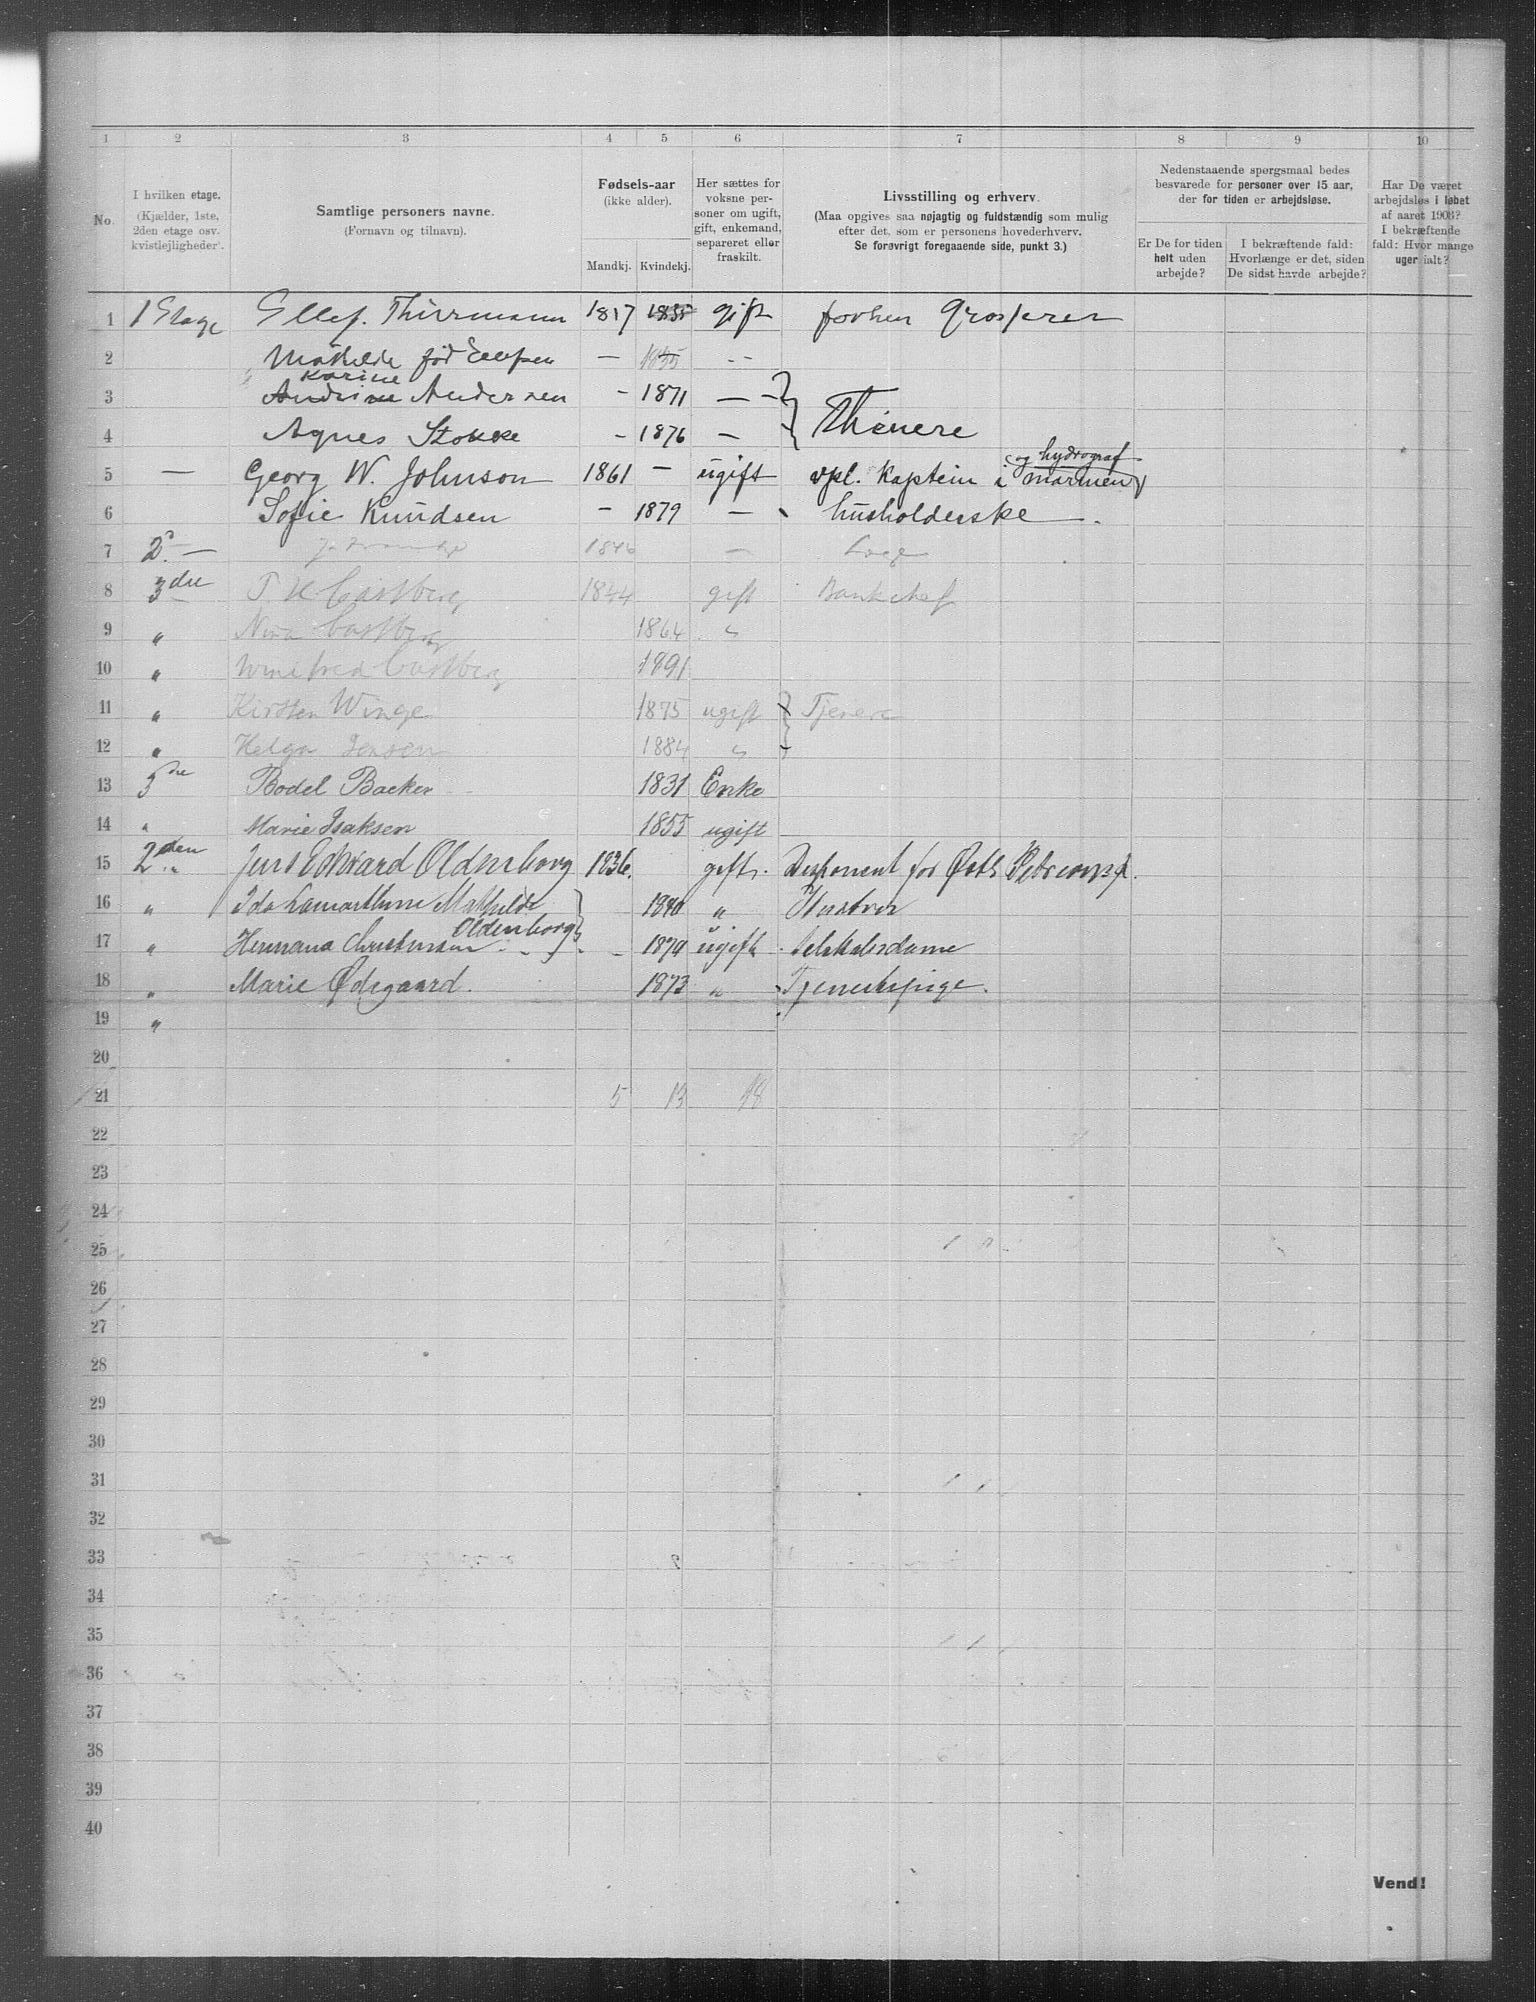 1 2 3 4 5 6 7 8 9 10
No.
I hvilken etage.
(Kjælder, 1ste,
2den etage osv.
kvistlejligheder).
Samtlige personers navne.
(Fornavn og tilnavn).
Fødsels-aar
(ikke alder).
Mandkj. Kvindekj.
Her sættes for
voksne per-
soner om ugift,
gift, enkemand,
separeret eller
fraskilt.
Livsstilling og erhverv.
(Maa opgives saa nøjagtig og fuldstændig som mulig
efter det, som er personens hovederhverv.
Se forøvrigt foregaaende side, punkt 3.)
Nedenstaaende spørgsmaal bedes
besvarede for personer over 15 aar,
der for tiden er arbejdsløse.
Er De for tiden
helt uden
arbejde?
I bekræftende fald:
Hvorlænge er det, siden
De sidst havde arbejde?
Har De været
arbejdsløs i løbet
af aaret 1903?
I bekræftende
fald: Hvor mange
uger ialt?
1 1 Etage Ellef. Thurmann 1837 1835 gift forhen Grosserer
2 Mathilde fød Ellefsen — 1835 --
3 Karine Andrine Andersen - 1871 —
4 Agnes Stokke - 1876 — Thjenere
5 — Georg W. Johnson 1861 — ugift vpl. Kaptein i marinen og hydrograf
6 Sofie Knudsen — 1879 — husholderske
7 2 — 1846 — Læge
8 3die T. H Castberg 1844 gift Bankchef
9 " Nina Castberg 1864 "
10 " Winifred Castberg 1891
11 " Kirsten Winge 1875 ugift Tjenere
12 " Helga Jensen 1884 "
13 3die Bodel Backer 1831 Enke
14 " Marie Isaksen 1855 ugift
15 2den Jens Edvard Oldenborg 1836. gift. Disponent for Østl. Petr comp.
16 " Ida Lamartine Mathilde Oldenborg 1840 " Hustru
17 " Hermana Christensen - 1879 ugift Selskabsdame
18 " Marie Ødegaard. 1873 " Tjenestepige.
19 "
20
21 5 13 18
22
23
24
25
26
27
28
29
30
31
32
33
34
35
36
37
38
39
40
Vend!